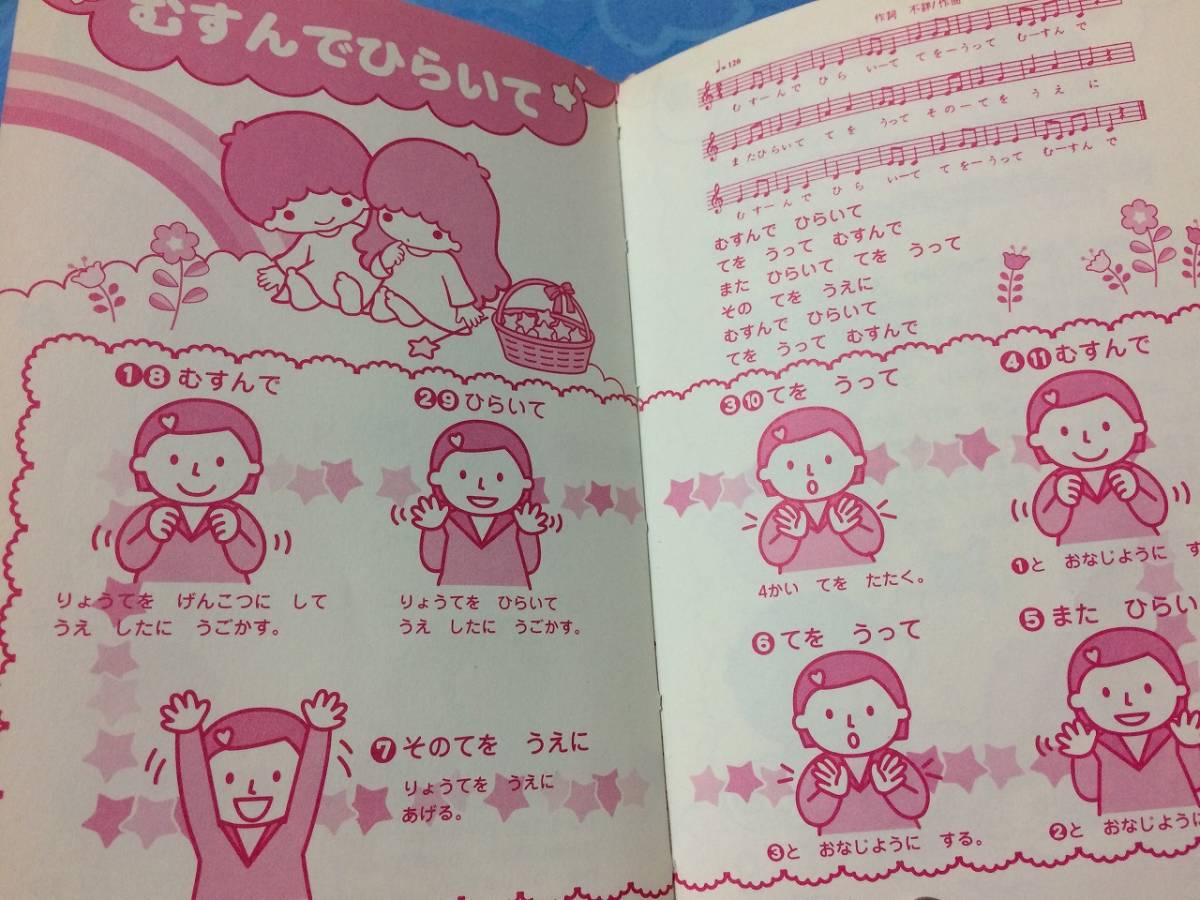 むすんでひらいて
作詞 不詳/作曲
♩=120
むすーんで ひら いーて てをーうって むーすん で
またひらいて てを うって そのーてを うえ に
むすーんで ひら いーて てをーうって むーすん で
むすんで ひらいて
てを うって むすんで
また ひらいて てを うって
その てを うえに
むすんで ひらいて
てを うって むすんで
❶❽むすんで
りょうてを げんこつに して
うえ したに うごかす。
❷❾ひらいて
りょうてを ひらいて
うえ したに うごかす。
❸❿てを うって
4かい てを たたく。
❹⓫むすんで
❶と おなじように す
❺また ひらい
❷と おなじように
❻てを うって
❸と おなじように する。
❼そのてを うえに
りょうてを うえに
あげる。